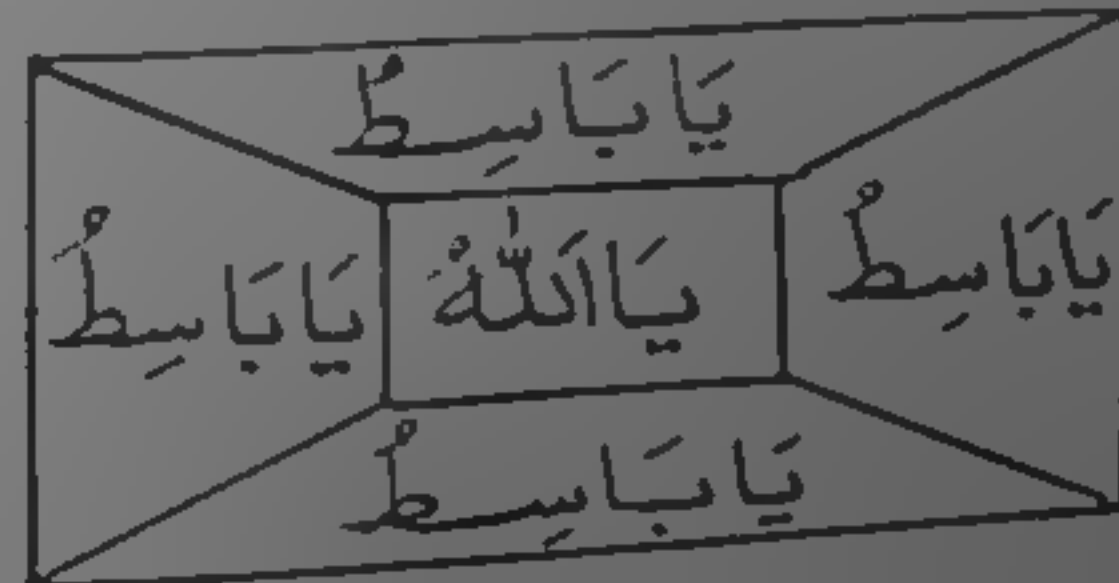 يَا بَا سِطُ
يَا بَا سِطُ
يَا اَللّٰهُ
يَا بَا سِطُ
يَا بَا سِطُ